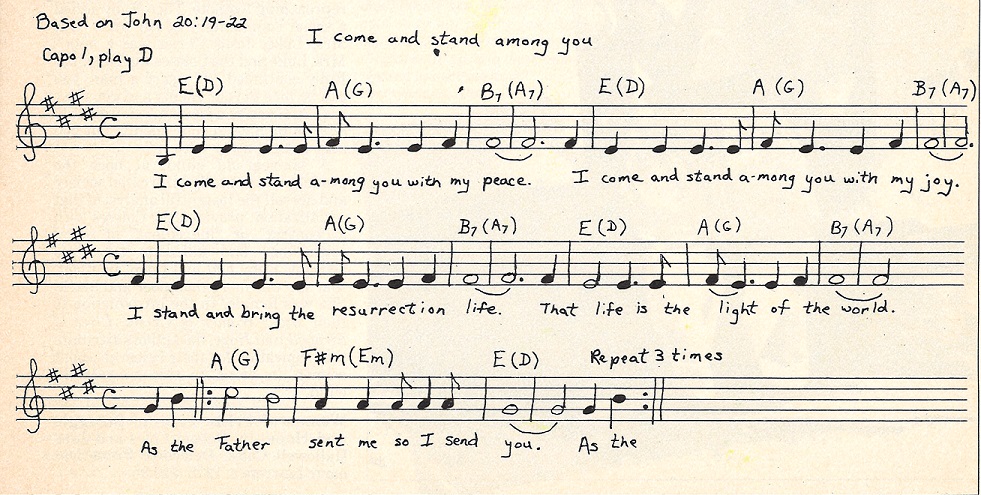 Based on John 20:19-22
I come and stand among you
Capo 1, play D
E(D) A(G) B7(A7) E(D) A(G) B7(A7)
I come and stand a-mong you with my peace. I come and stand a-mong you with my joy.
E(D) A(G) B7(A7) E(D) A(G) B7(A7)
I stand and bring the resurrection life. That life is the light of the world.
A(G) F#m(Em) E(D) Repeat 3 times
As the Father sent me so I send you. As the